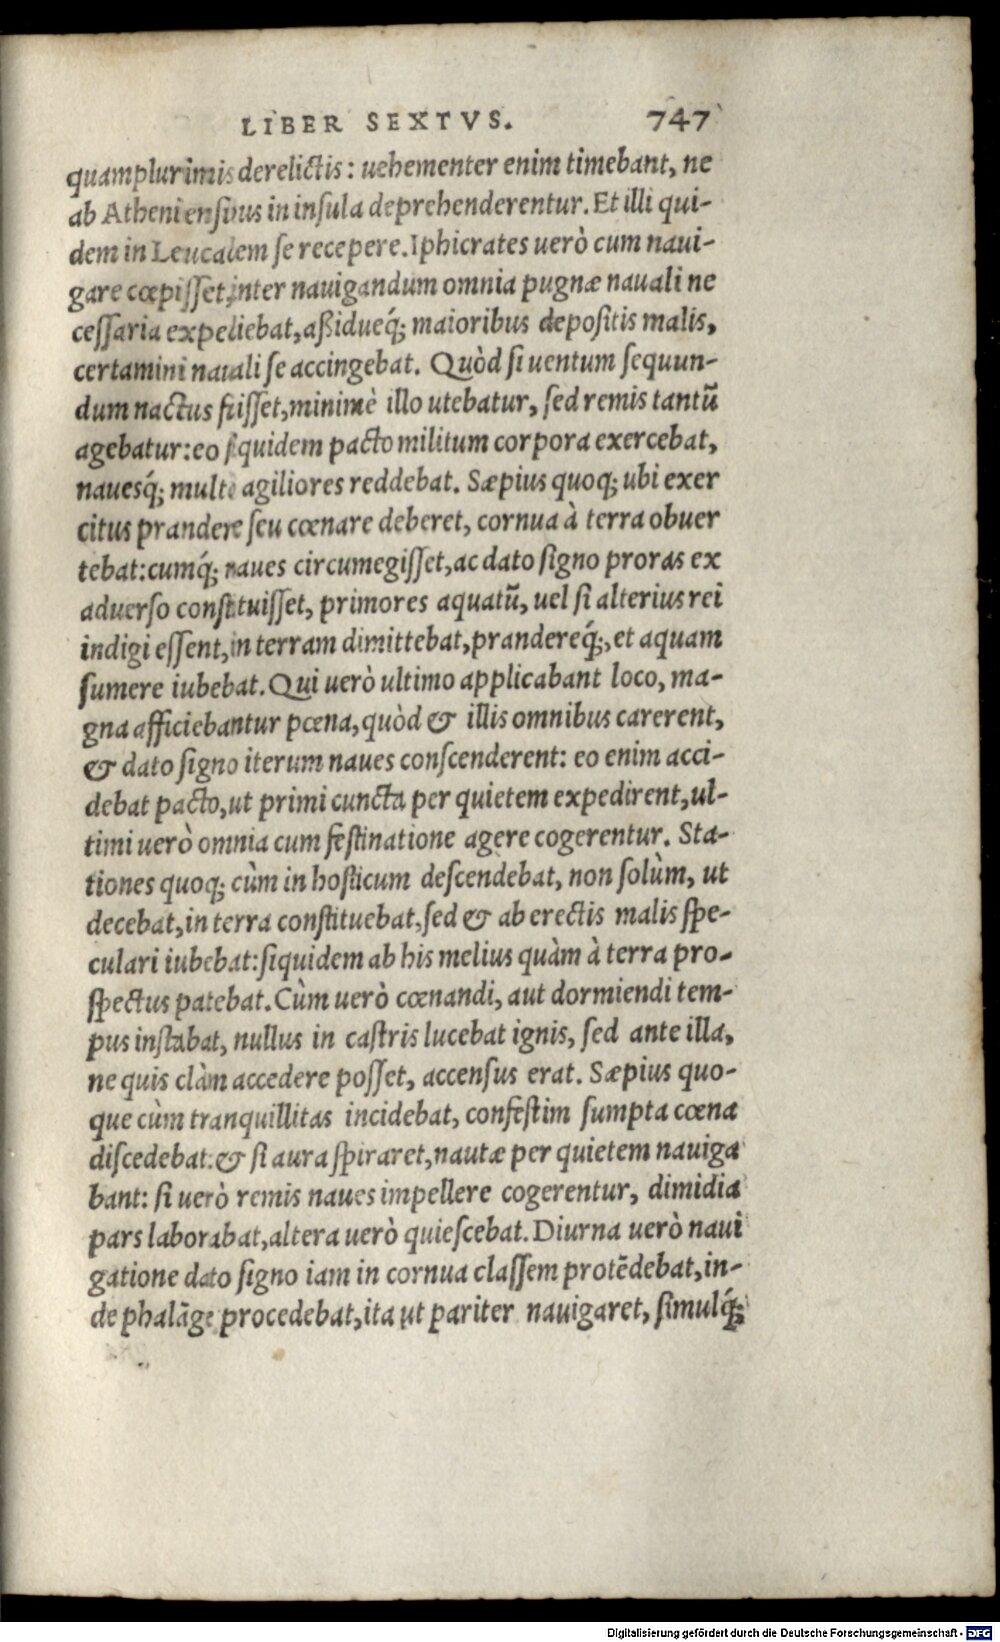 LIBER SEXTVS. 747
quamplurimis derelictis: uehementer enim timebant, ne
ab Atheniensibus in insula deprehenderentur. Et illi qui-
dem in Leucadem se recepere. Iphicrates uerò cum naui-
gare cœpisset, inter nauigandum omnia pugnæ nauali ne
cessaria expediebat, aßidueq́; maioribus depositis malis,
certamini nauali se accingebat. Quòd si uentum sequun-
dum nactus fuisset, minimè illo utebatur, sed remis tantũ
agebatur: eo siquidem pacto militum corpora exercebat,
nauesq́; multo agiliores reddebat. Sæpius quoq; ubi exer
citus prandere seu cœnare deberet, cornua à terra obuer
tebat: cumq́; naues circumegisset, ac dato signo proras ex
aduerso constituisset, primores aquatũ, uel si alterius rei
indigi essent, in terram dimittebat, prandereq́;, et aquam
sumere iubebat. Qui uerò ultimo applicabant loco, ma-
gna afficiebantur pœna, quòd & illis omnibus carerent,
& dato signo iterum naues conscenderent: eo enim acci-
debat pacto, ut primi cuncta per quietem expedirent, ul-
timi uerò omnia cum festinatione agere cogerentur. Sta-
tiones quoq; cùm in hosticum descendebat, non solùm, ut
decebat, in terra constituebat, sed & ab erectis malis spe-
culari iubebat: siquidem ab his melius quàm à terra pro-
spectus patebat. Cùm uerò cœnandi, aut dormiendi tem-
pus instabat, nullus in castris lucebat ignis, sed ante illa,
ne quis clàm accedere posset, accensus erat. Sæpius quo-
que cùm tranquillitas incidebat, confestim sumpta cœna
discedebat: & si aura spiraret, nautæ per quietem nauiga
bant: si uerò remis naues impellere cogerentur, dimidia
pars laborabat, altera uerò quiescebat. Diurna uerò naui
gatione dato signo iam in cornua classem protẽdebat, in-
de phalãge procedebat, ita ut pariter nauigaret, simulq́;
Digitalisierung gefördert durch die Deutsche Forschungsgemeinschaft - DFG